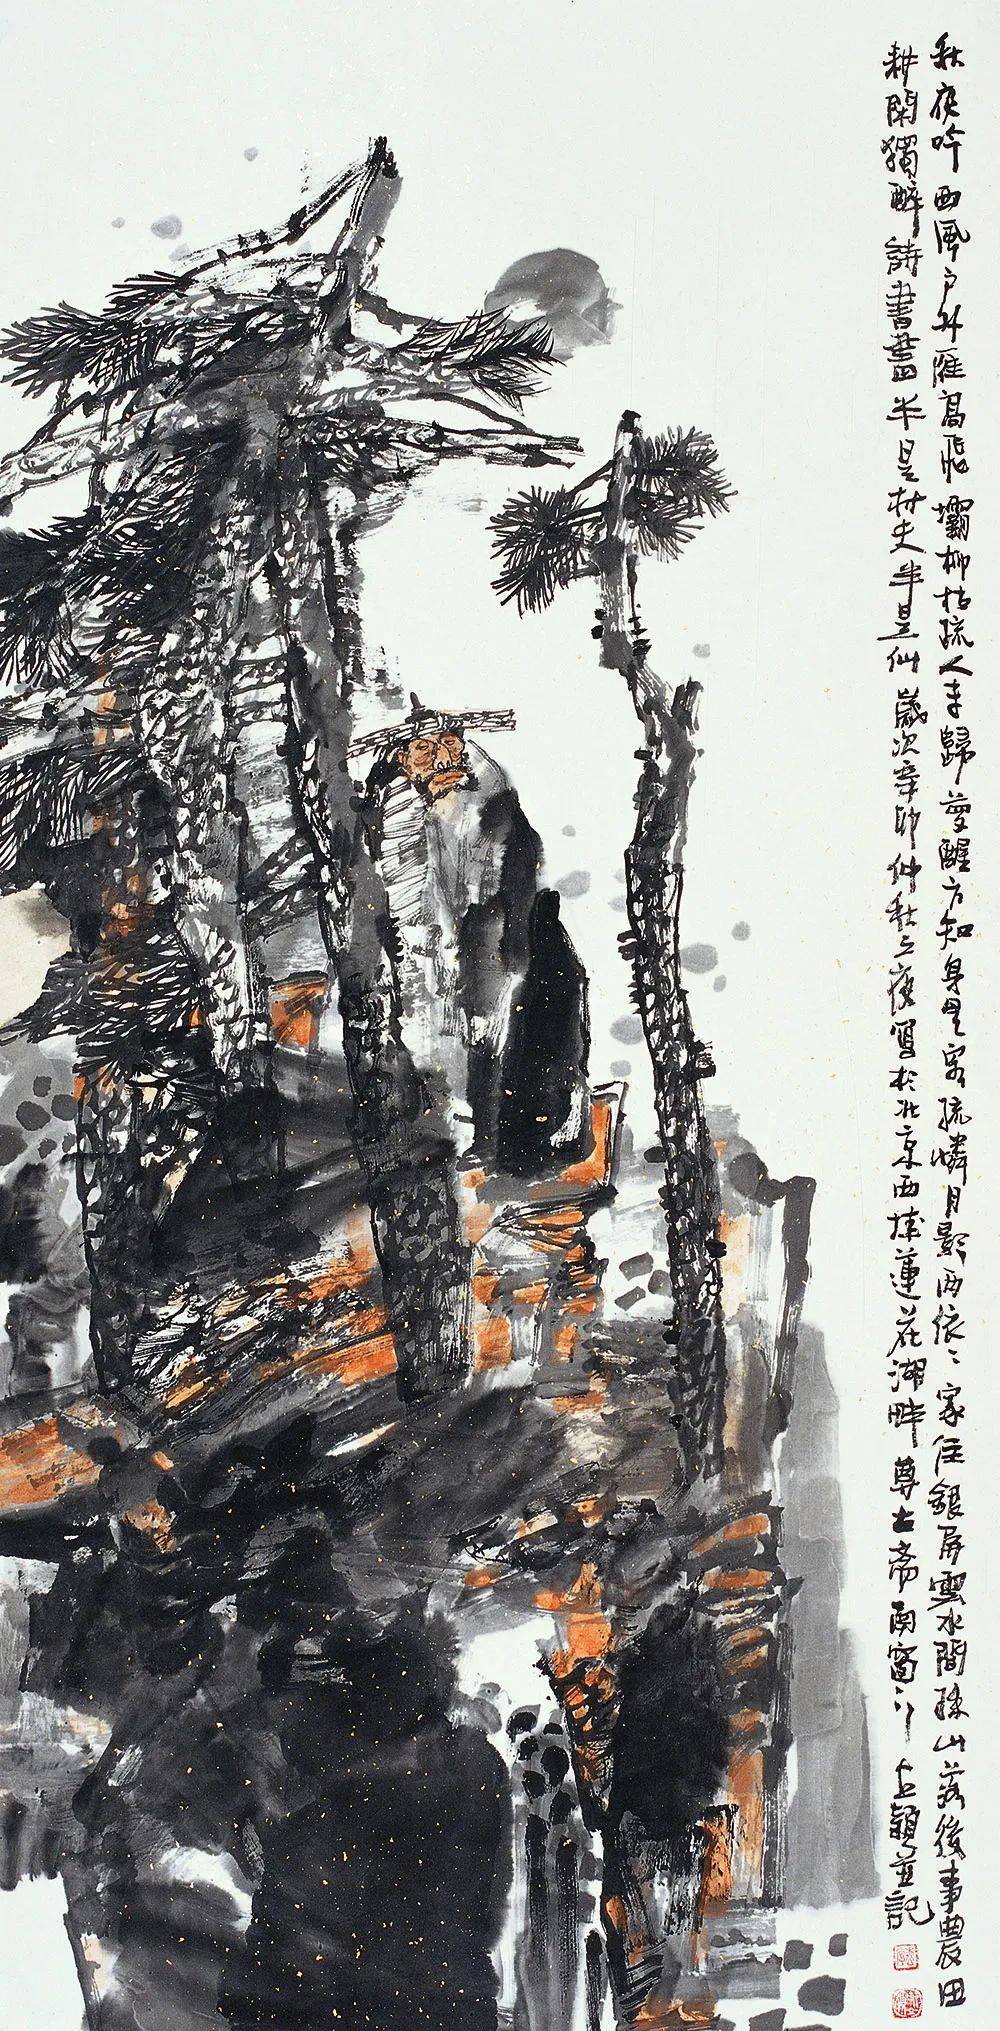 秋夜吟西風戶外雁高飛壩柳枯疏人未歸夢醒方知身是客孤憐月影兩依〻家住銀屏雲水間珠山落後事農田
耕閑獨醉詩書畫半是村夫半是仙歲次辛卯仲秋之夜寫於北京西埭蓮花湖畔尊古齋南窗下志穎並記